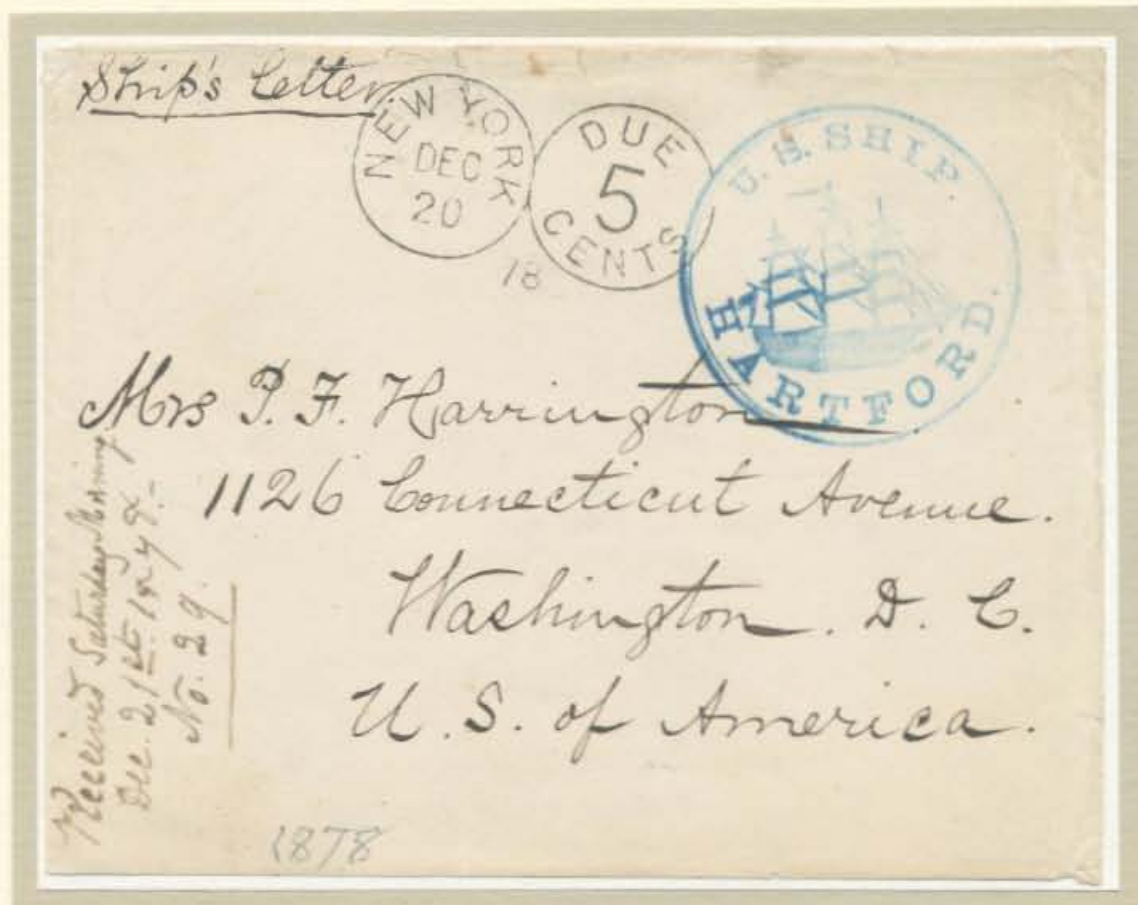 Ship's Letter
NEW YORK
DEC
20
DUE
5
CENTS
18
U.S. SHIP
HARTFORD.
Mrs P. F. Harrington.
1126 Connecticut Avenue.
Washington. D. C.
U. S. of America.
Received Saturday Morning
Dec. 21st. 1878.-
No. 29.
1878